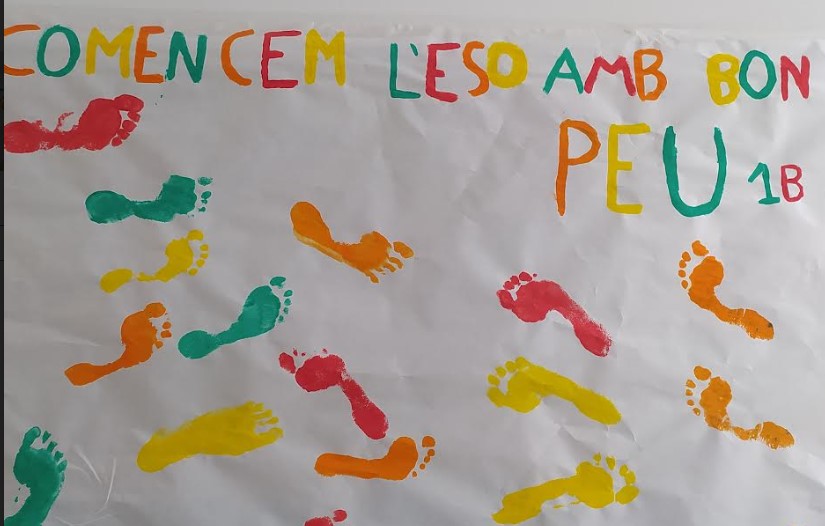 COMENCEM L'ESO AMB BON
PEU 1B